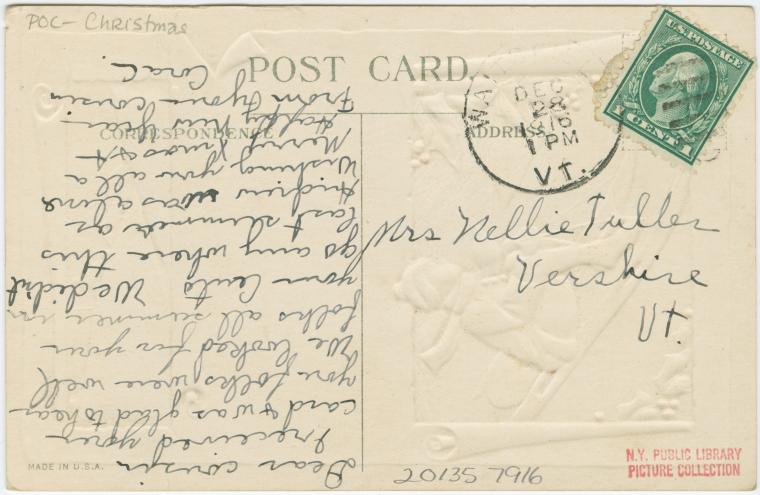 POC- Christmas
POST CARD.
CORRESPONDENCE
ADDRESS
U.S. POSTAGE
1 CENT 1
DEC
28
1 PM
VT.
Mrs Nellie Fuller
Vershire
Vt.
Dear cousin
I received your
card & was glad to hear
you folks were well
We looked for your
folks all summer in
your auto We didnt
go any where this
last summer as
Andrew was alone
Wishing you all a
Merry Xmas &
Happy New Year
From your cousin
Cora C.
MADE IN U.S.A.
20135 7916
N.Y. PUBLIC LIBRARY
PICTURE COLLECTION